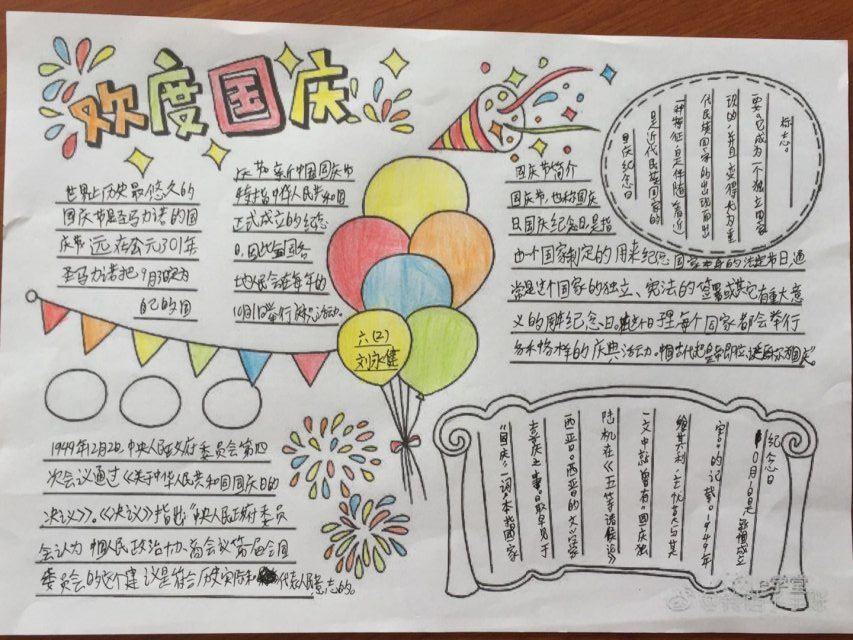 欢度国庆
世界上历史最悠久的
国庆节是圣马力诺的国
庆节,远在公元301年
圣马力诺把9月3日定为
自己的国
庆节
特指中华人民共和国
正式成立的纪念
日
地民会在每年的
10月1日举行
国庆节简介
国庆节,也称国庆
日国庆纪念日,是指
由一个国家制定的用来纪念国家本身的法定节日,通
常是这个国家的独立、宪法的签署或其它有重大意
每个国家都会举行
的庆典活动。
国庆纪念日
是近代民族国家的
一种特征,是伴随着近
代民族国家的出现而出
现的,并且变得尤为重
要。它成为一个独立国家
标志。
六(2)
刘永健
1949年12月2日,中央人民政府委员会第四
次会议通过《关于中华人民共和国国庆日的
决议》。《决议》指出“中央人民政府委员
会认为
委员会的这个建议是符合历史实际和代表人民意志的。
“国庆”一词,本指国家
喜庆之事,最早见于
西晋
陆机在《五等诸侯论》
一文中就曾有“国庆独
1949年
10月1日
纪念日